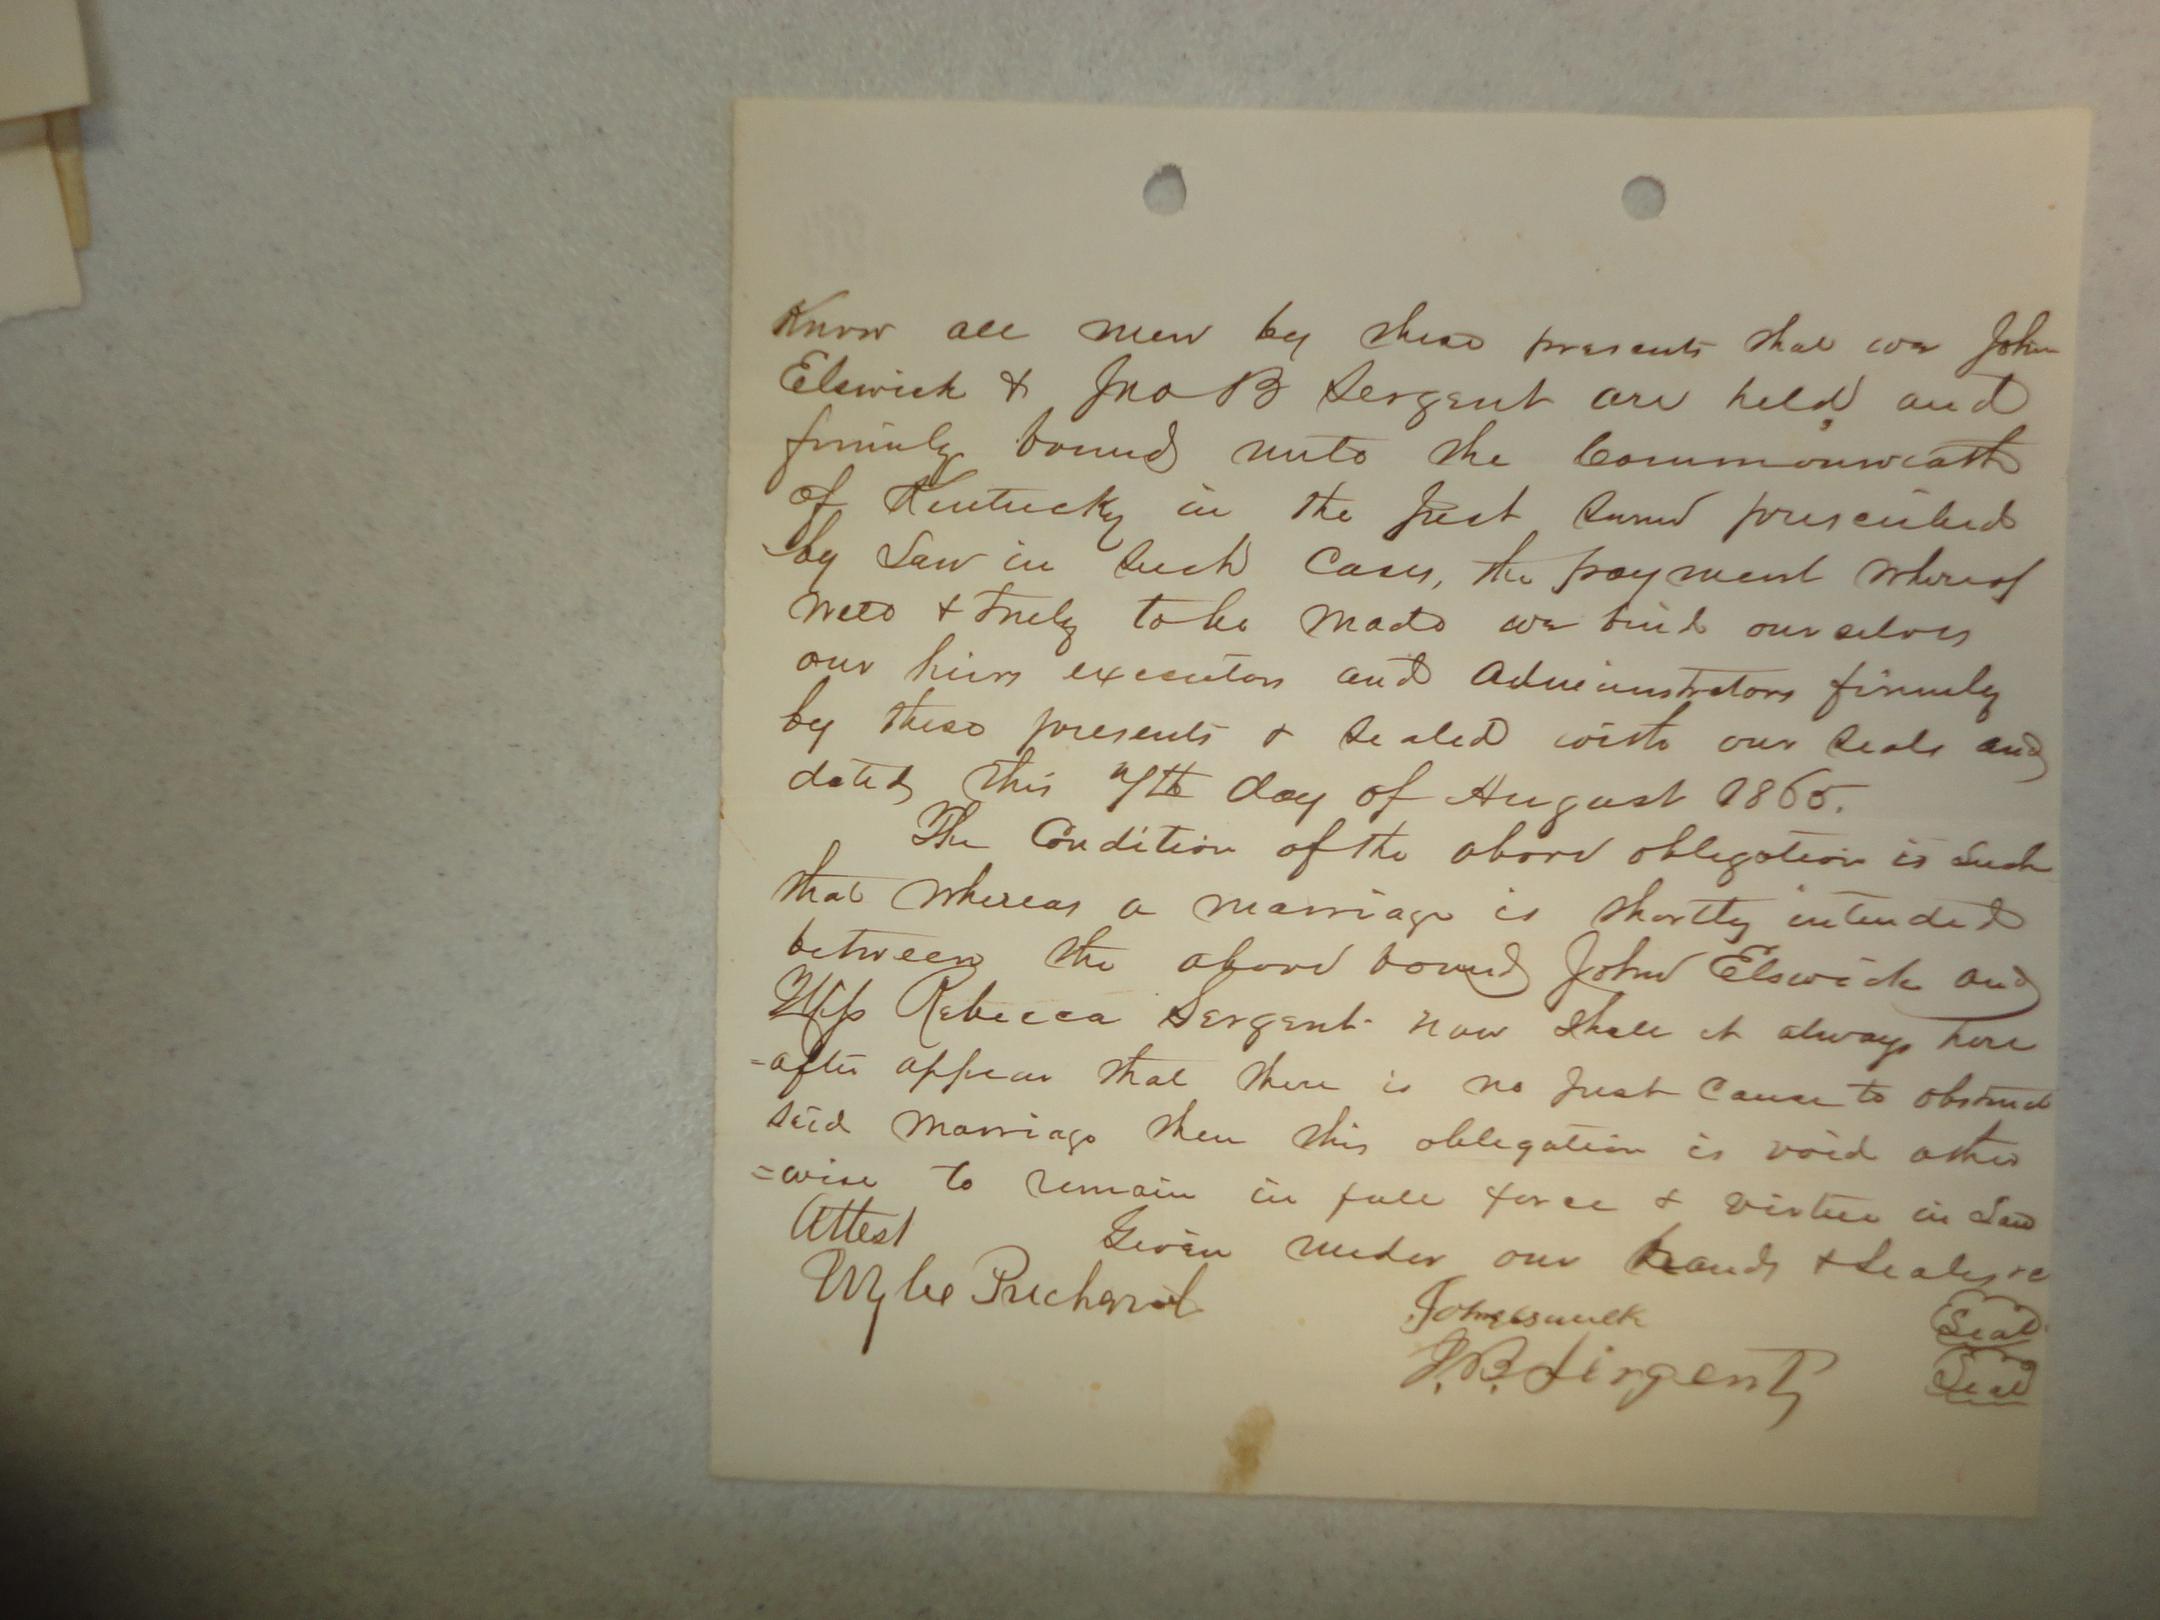 Know all men by these presents that we John
Elswick & Jno B Sergent are held and
firmly bound unto the Commonwealth
of Kentucky in the just sum prescribed
by Law in such Cases, the payment whereof
well & truly to be made we bind ourselves
our heirs executors and administrators firmly
by these presents & sealed with our seals and
dated this 7th day of August 1865.
The Condition of the above obligation is such
that whereas a marriage is shortly intended
between the above bound John Elswick and
Miss Rebecca Sergent now shall it always here
=after appear that there is no just Cause to obstruct
said marriage then this obligation is void other
=wise to remain in full force & virtue in Law
Attest Given under our hands & seals
Wylie Prichard
John Elswick Seal
J. B. Sirgent Seal